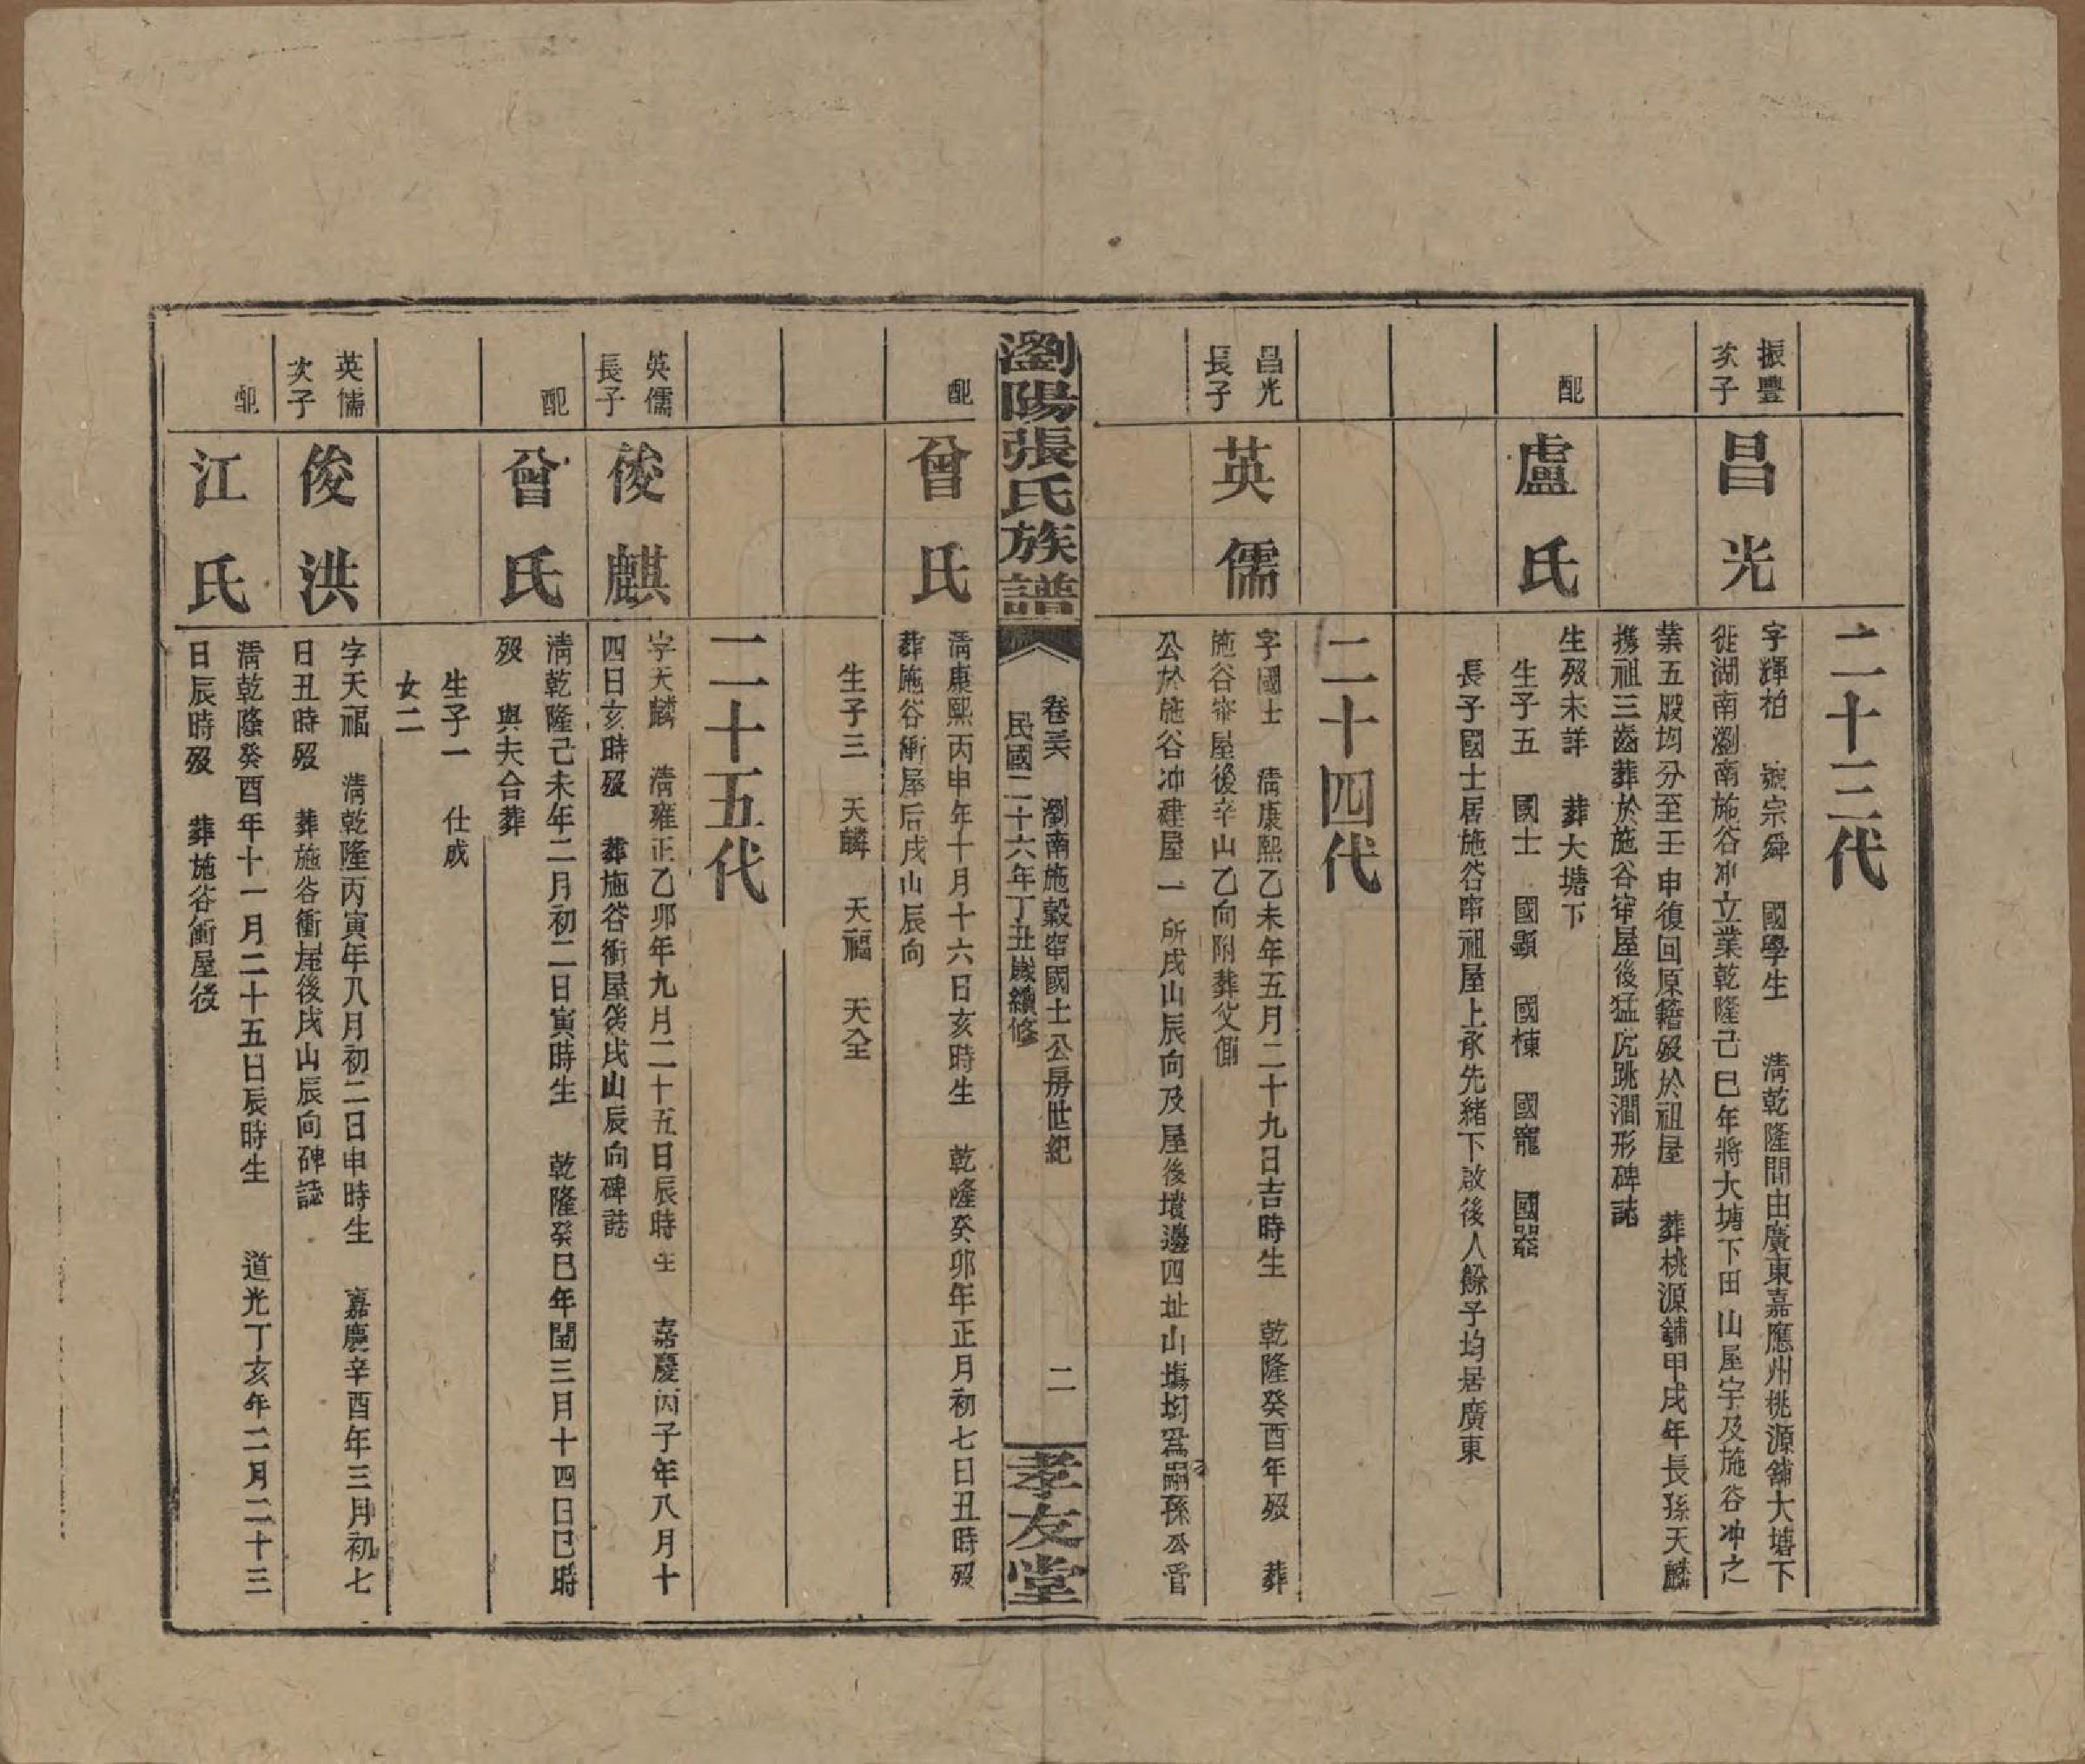 二十三代
振豐
次子
昌光
字輝柏 號宗舜 國學生 淸乾隆間由廣東嘉應州桃源舖大塘下
徙湖南瀏南施谷冲立業乾隆己巳年將大塘下田山屋宇及施谷冲之
業五股均分至壬申復回原籍歿於祖屋 葬桃源舖甲戌年長孫天麟
携祖三齒葬於施谷窜屋後猛虎跳澗形碑誌
配
盧氏
生歿未詳 葬大塘下
生子五 國士 國顯 國棟 國寵 國器
長子國士居施谷窜祖屋上承先緒下啟後人餘子均居廣東
二十四代
昌光
長子
英儒
字國士 淸康熙乙未年五月二十九日吉時生 乾隆癸酉年歿 葬
施谷窜屋後辛山乙向附葬父側
公於施谷冲建屋一所戌山辰向及屋後墳邊四址山塲均爲嗣孫公管
瀏陽張氏族譜
卷 瀏南施穀窜國士公房世紀
民國二十六年丁丑歲續修
二
孝友堂
配
曾氏
淸康熙丙申年十月十六日亥時生 乾隆癸卯年正月初七日丑時歿
葬施谷衝屋后戌山辰向
生子三 天麟 天福 天全
二十五代
英儒
長子
俊麒
字天麟 淸雍正乙卯年九月二十五日辰時生 嘉慶丙子年八月十
四日亥時歿 葬施谷衝屋後戌山辰向碑誌
配
曾氏
淸乾隆己未年二月初二日寅時生 乾隆癸巳年閏三月十四日巳時
歿 與夫合葬
生子一 仕成
女二
英儒
次子
俊洪
字天福 淸乾隆丙寅年八月初二日申時生 嘉慶辛酉年三月初七
日丑時歿 葬施谷衝屋後戌山辰向碑誌
配
江氏
淸乾隆癸酉年十一月二十五日辰時生 道光丁亥年二月二十三
日辰時歿 葬施谷衝屋後